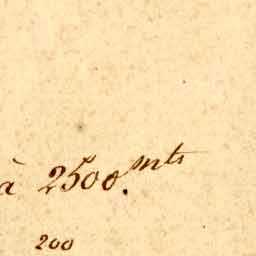 à 2500.mts
200